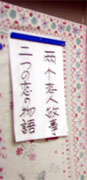 兩个恋人故事
二つの恋の物語